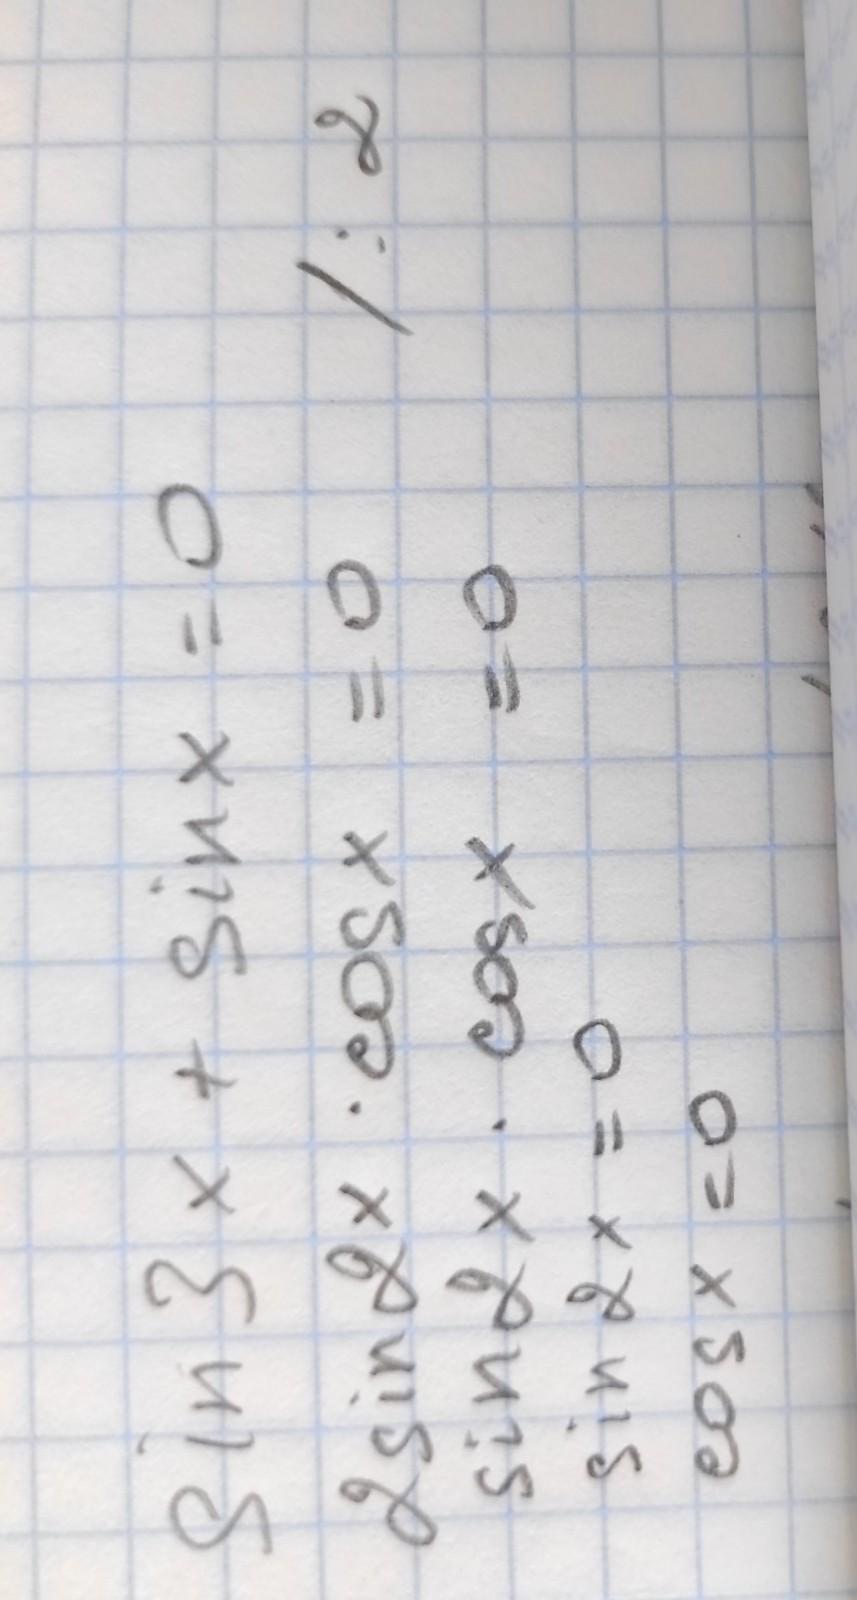 sin 3x + sin x = 0
2 sin 2x · cos x = 0 /: 2
sin 2x · cos x = 0
sin 2x = 0
cos x = 0